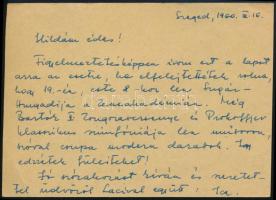 Szeged, 1960. X. 16.
Hildám édes!
Figyelmeztetésképpen írom ezt a lapot
arra az esetre, ha elfelejtettétek volna,
hogy 19-én, este 8 kor lesz Sugár-
Hungadija a Zeneakadémián. Még
Bartók I Zongoraversenye és Prokoffjev
klasszikus szimfóniája lesz műsoron,
szóval csupa modern darabok.
edzétek füleiteket!
Jó szórakozást kíván és szeretet-
tel üdvözöl Lacival együtt: Ica